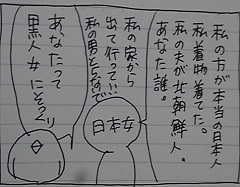 私の方が本当の日本人
私着物着てた。
私の夫が北朝鮮人。
あなた誰。
私の家から
出て行ってい
私の男とらないで
日本女
あ、なたって
黒人女にそっくり